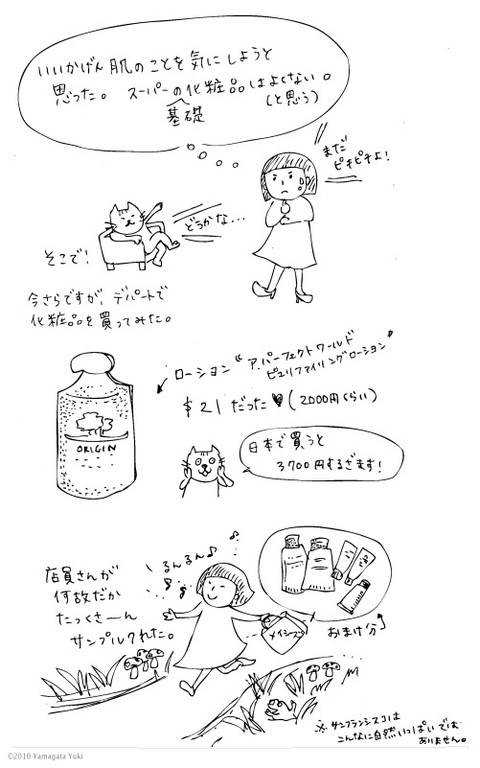 いいかげん肌のことを気にしようと
思った。スーパーの基礎化粧品はよくない。
(と思う)
まだ
ピチピチよ!
どうかな...
そこで!
今さらですが、デパートで
化粧品を買ってみた。
ローション“ア・パーフェクトワールド
ピュリファイリングローション”
$21だった♥(2000円くらい)
ORIGIN
日本で買うと
3700円するざます!
るんるん♪
店員さんが
何故だか
たっくさーん
サンプルくれた。
メイシーズ
おまけ分
※サンフランシスコは
こんなに自然いっぱいでは
ありません。
©2010 Yamagata Yuki